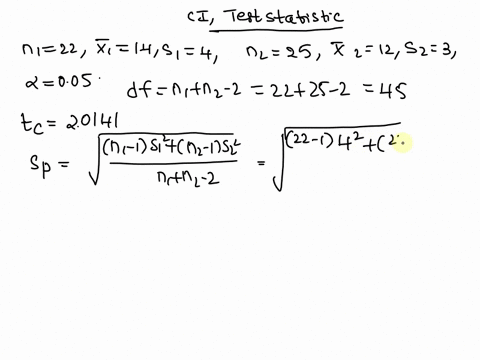 CI, Test statistic
n₁=22, x̄₁=14, s₁=4, n₂=25, x̄₂=12, s₂=3,
α=0.05. df=n₁+n₂-2 = 22+25-2 = 45
t_c = 2.0141
Sp = √((n₁-1)s₁²+(n₂-1)s₂² / n₁+n₂-2) = √((22-1)4²+(2